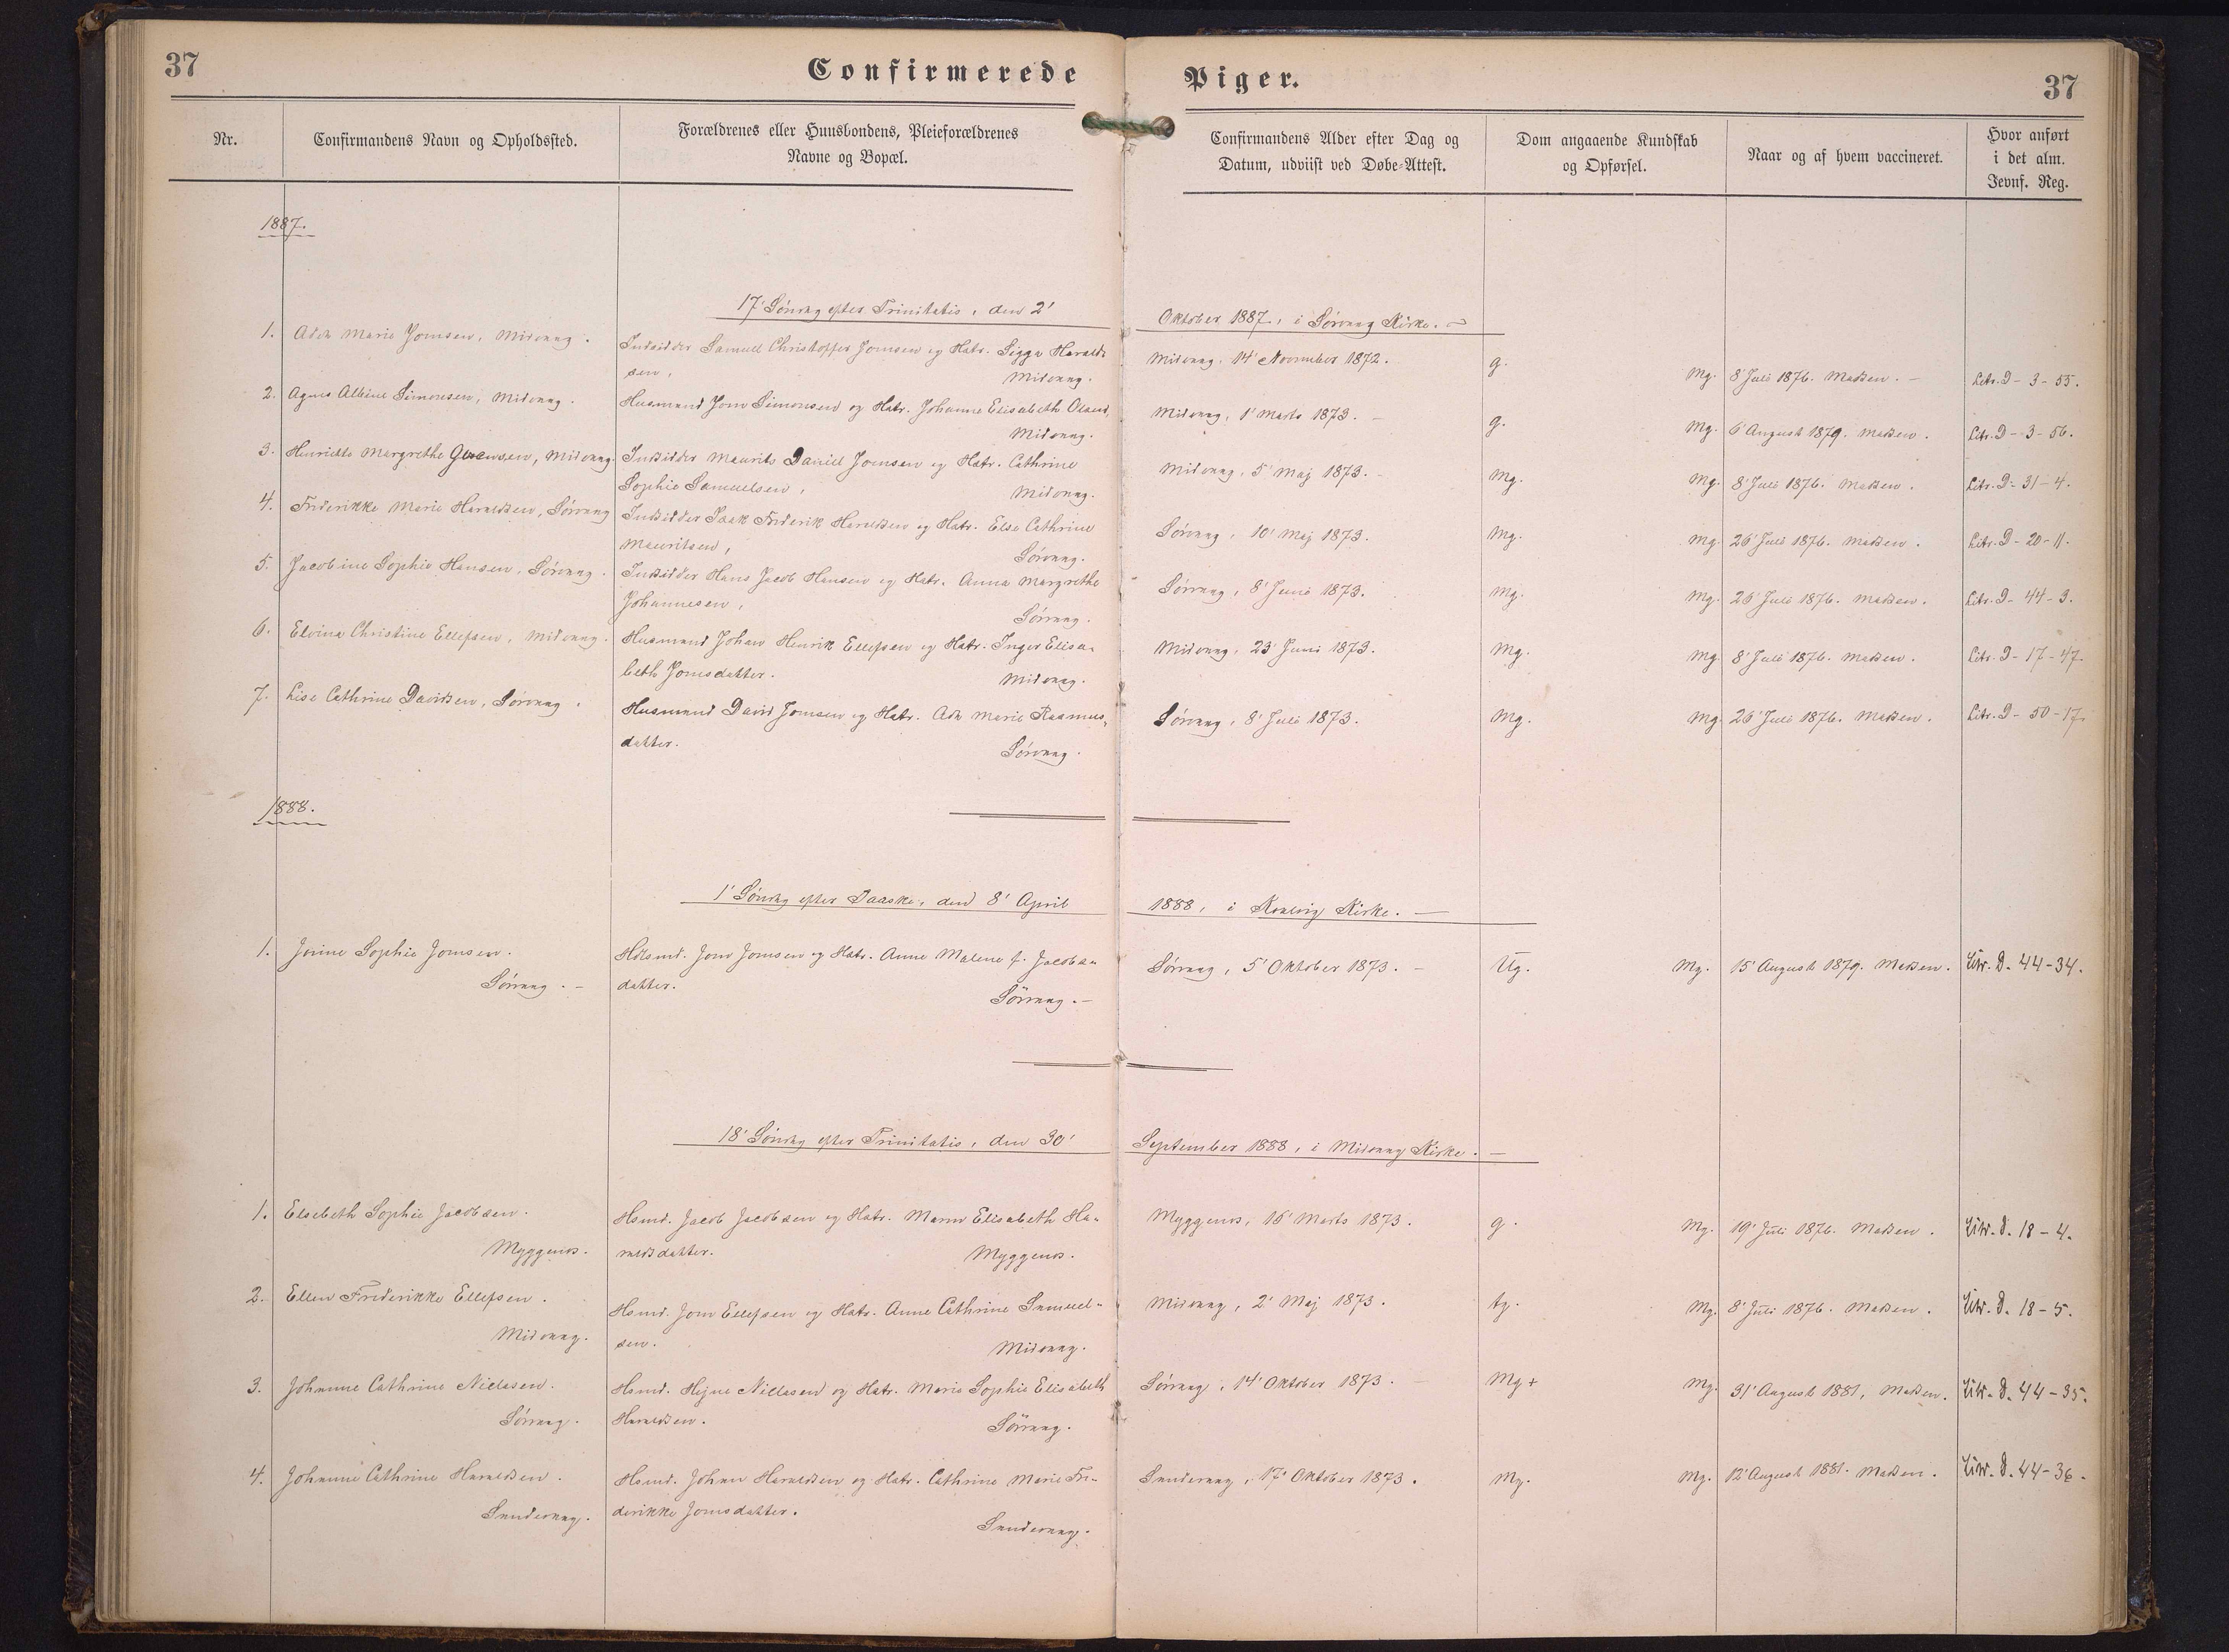 37
Confirmerede
Piger.
37
Nr.
Confirmandens Navn og Opholdssted.
Forældrenes eller Huusbondens, Pleieforældrenes
Navne og Bopæl.
Confirmandens Alder efter Dag og
Datum, udviist ved Døbe-Attest.
Dom angaaende Kundskab
og Opførsel.
Naar og af hvem vaccineret.
Hvor anført
i det alm.
Jevnf. Reg.
1887.
17' Søndag efter Trinitatis, den 2' Oktober 1887, i Sørvaag Kirke.
1. Marie Joensen, Midvaag. Indsidder Samuel Christoffer Joensen og Hstr. Sigga Haralds- Midvaag, 14' November 1872. g. Mg. 8' Juli 1876. Madsen. Litr. D - 3 - 55.
sen, Midvaag.
2. Agnes Albine Simonsen, Midvaag. Husmand Joen Simonsen og Hstr. Johanne Elisabeth Midvaag, 1' Marts 1873. g. Mg. 6' August 1879. Madsen. Litr. D - 3 - 56.
Midvaag.
3. Henriette Margrethe Midvaag. Indsidder Maurits Daniel Joensen og Hstr. Cathrine Midvaag, 5' Maj 1873. Mg. Mg. 8' Juli 1876. Madsen. Litr. D - 31 - 4.
Sophie Samuelsen, Midvaag.
4. Friderikke Marie Haraldsen, Sørvaag Indsidder Isak Friderik Haraldsen og Hstr. Else Cathrine Sørvaag, 10' Maj 1873. Mg. Mg. 26' Juli 1876. Madsen. Litr. D - 20 - 11.
Mauritsen, Sørvaag.
5. Jacobine Sophie Hansen, Sørvaag. Indsidder Hans Jacob Hansen og Hstr. Anna Margrethe Sørvaag, 8' Juni 1873. Mg. Mg. 26' Juli 1876. Madsen. Litr. D - 44 - 3.
Johannesen, Sørvaag.
6. Elvina Christine Ellefsen, Midvaag. Husmand Johan Henrik Ellefsen og Hstr. Inger Elisa- Midvaag, 23' Juni 1873. Mg. Mg. 8' Juli 1876. Madsen. Litr. D - 17 - 47.
beth Joensdatter. Midvaag.
7. Lise Cathrine Davidsen, Sørvaag. Husmand David Joensen og Hstr. Marie Rasmus- Sørvaag, 8' Juli 1873. Mg. Mg. 26' Juli 1876. Madsen. Litr. D - 50 - 17.
datter. Sørvaag.
1888.
1' Søndag efter Paaske, den 8' April 1888, i Kirke.
1. Sophie Joensen. Joen Joensen og Hstr. Anne Malene f. Jacobs- Sørvaag, 5' Oktober 1873. Ug. Mg. 15' August 1879. Madsen. Litr. D. 44 - 34.
Sørvaag. datter. Sørvaag.
18' Søndag efter Trinitatis, den 30' September 1888, i Midvaag Kirke.
1. Elsebeth Sophie Jacobsen. Hsmd. Jacob Jacobsen og Hstr. Maren Elisabeth Ha- Myggenæs, 16' Marts 1873. g. Mg. 19' Juli 1876. Madsen. Litr. D. 18 - 4.
Myggenæs. raldsdatter. Myggenæs.
2. Ellen Frederikke Ellefsen. Hsmd. Joen Ellefsen og Hstr. Anne Cathrine Samuel- Midvaag, 2' Maj 1873. tg. Mg. 8' Juli 1876. Madsen. Litr. D. 18 - 5.
Midvaag. sen. Midvaag.
3. Johanne Cathrine Nielssen. Hsmd. Hejne Nielssen og Hstr. Marie Sophie Elisabeth Sørvaag, 14' Oktober 1873. Mg + Mg. 31' August 1881, Madsen. Litr. D. 44 - 35.
Sørvaag. Haraldsen. Sørvaag.
4. Johanne Cathrine Haraldsen. Hsmd. Johan Haraldsen og Hstr. Cathrine Marie Fri- Sandevaag, 17' Oktober 1873. Mg. Mg. 12' August 1881. Madsen. Litr. D. 44 - 36.
Sandevaag. derikke Joensdatter. Sandevaag.